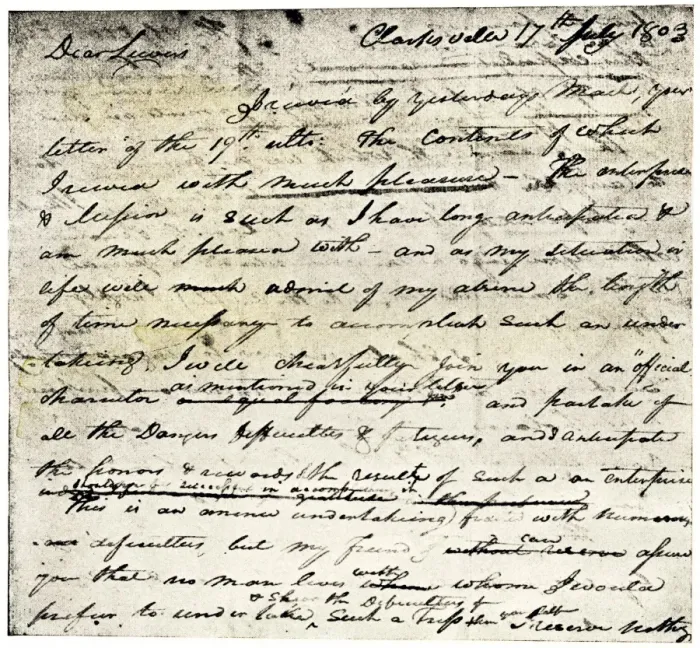 Clarksville 17th July 1803
Dear Lewis
I received by yesterdays Mail, your
letter of the 19th ulto: The Contents of which
I received with much pleasure - The enterprise
& Mission is such as I have long anticipated &
am much pleased with - and as my situation in
life will admit of my absence the length
of time necessary to accomplish such an under
taking I will chearfully join you in an "official
Charrector" as mentioned in your letter and partake of
all the Dangers Difficulties & fatigues, and I anticipate
the honors & rewards of the result of such an enterprise
This is an undertaking with numerous
difficulties, but my friend I can assure
you that no man lives with whome I would
prefur to undertake & Share the Difficulties of Such a Trip than yourself I reserve nothing